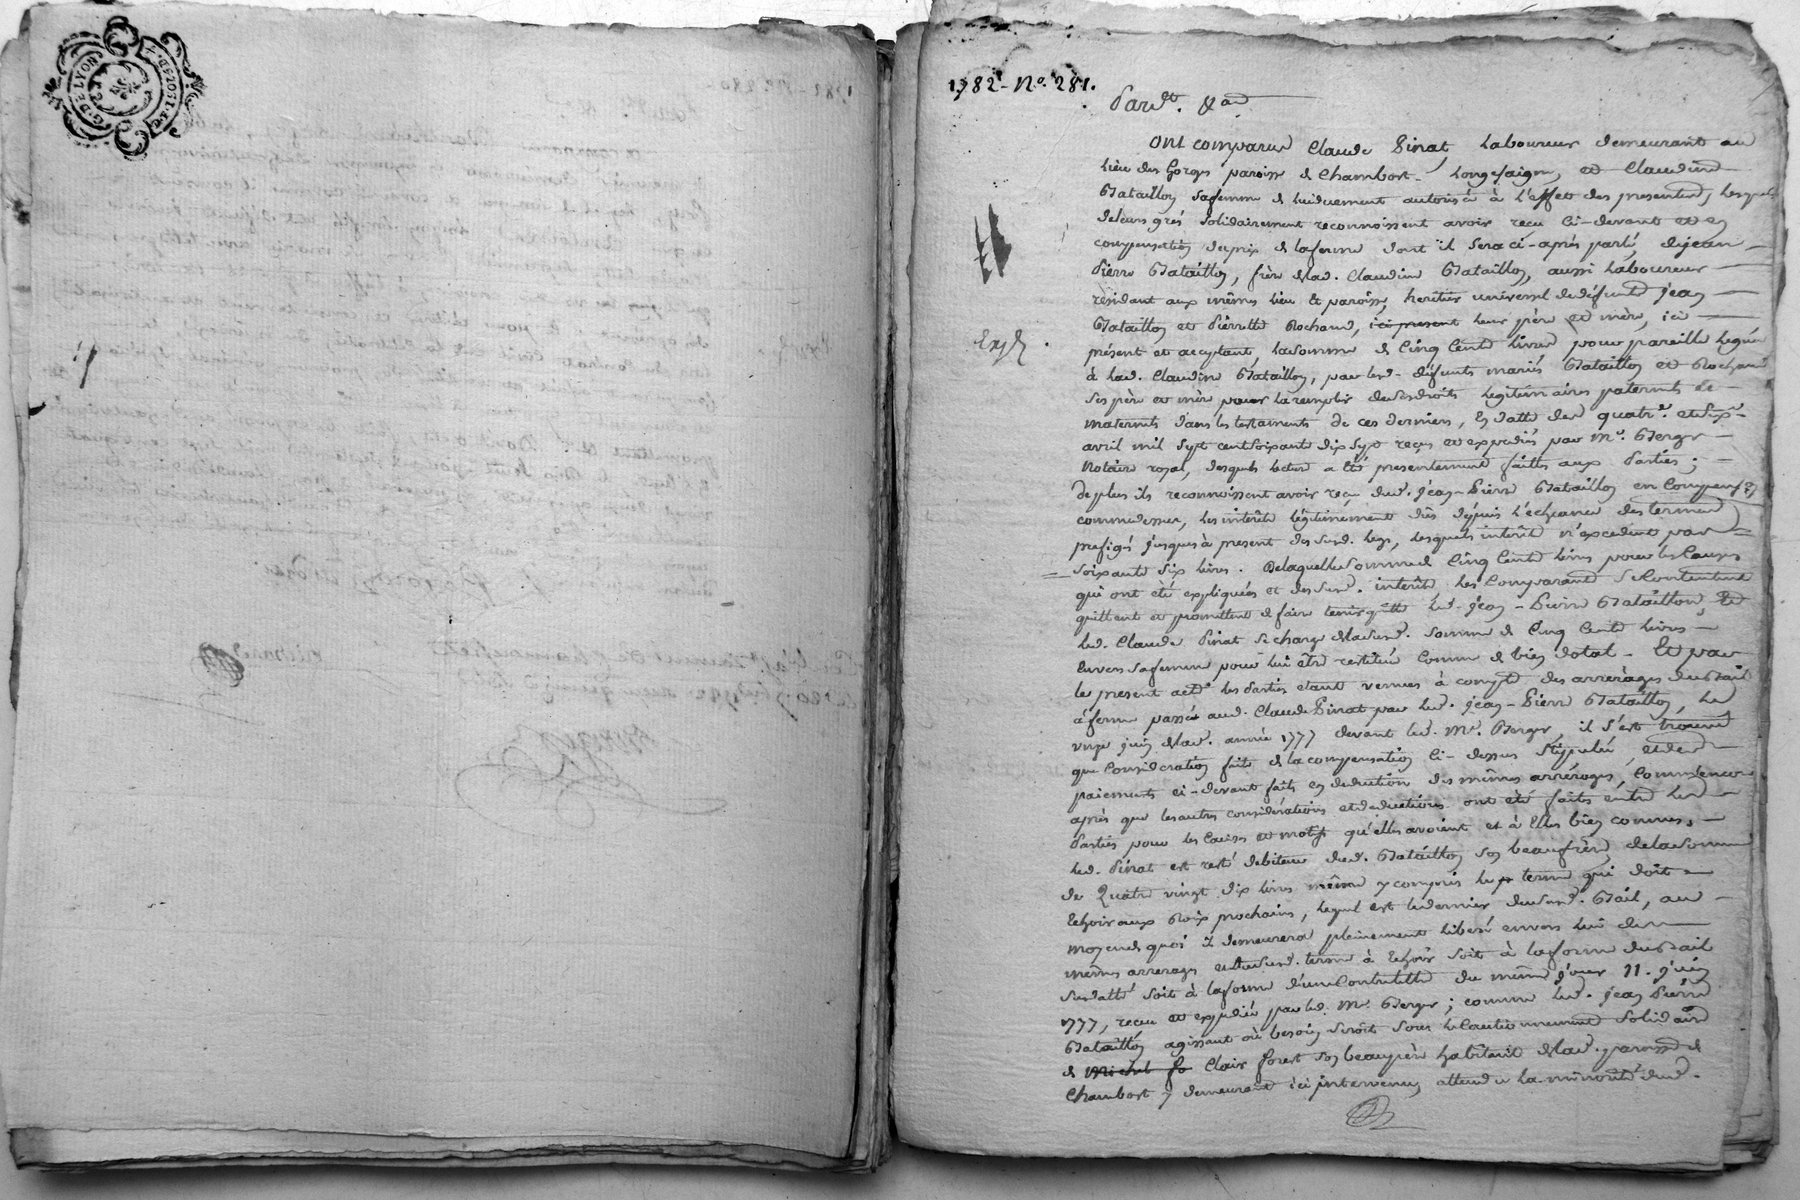 G. DE LYON
1782 - N.º 281.
Pard.t &a
Ont comparu Claude Pinat, Laboureur demeurant au
Lieu des Gorges paroisse de Chambost - Longesaigne, et Claudine
Bataillon sa femme de lui duement autorisée à l'effet des presentes, lesquels
de leurs grés solidairement reconnoissent avoir reçu ci-devant et en
compensation du prix de la ferme dont il sera ci-après parlé, de jean -
Pierre Bataillon, frère de lad. Claudine Bataillon, aussi Laboureur
résidant aux mêmes lieu et paroisse, heritier universel de défunts jean
Bataillon et Pierrette Rochand, ici present leur père et mère, ici
présent et acceptant, la somme de Cinq Cents livres pour pareille leguée
à lad. Claudine Bataillon, par lesd. défunts mariés Bataillon et Rochand
ses père et mère pour la remplir de ses droits légitimaires paternels et
maternels dans les testaments de ces derniers, en datte des quatre et dix
avril mil sept cent soixante dix sept reçus et expediés par M.e Berger
Notaire royal, desquels lecture a été presentement faitte aux Parties;
de plus ils reconnoissent avoir reçu dud. jean-Pierre Bataillon en compens.on
comme dessus, les intérêts légitimement dûs depuis l'echeance des termes
prefigés jusques à present des susd. legs, lesquels intérêts n'excedent pas
soixante six livres. De laquelle somme de Cinq Cents livres pour les Causes
qui ont été expliquées et des susd. intérêts les Comparants se Contentent
quittent et promettent de faire tenir quitte led. jean-Pierre Bataillon, et
led. Claude Pinat se charge de la susd. somme de Cinq Cents livres
envers sa femme pour lui être restituée Comme de bien dotal. Et par
le present acte les Parties étant venues à compte des arrérages du Bail
à ferme passé aud. Claude Pinat par led. jean-Pierre Bataillon, le
onze juin de lad. année 1777 devant led. M.e Berger, il s'est trouvé
que Considération faite de la compensation ci-dessus stipulée, et des
paiements ci-devant faits en deduction des mêmes arrérages, Comme encore
après que les autres considérations et deductions ont été faites entre les
Parties pour les Causes et motifs qu'elles avoient et à Elles bien connues,
led. Pinat est resté debiteur dud. Bataillon son beaufrère, de la somme
de Quatre vingt dix livres même y compris le terme qui doit
Echoir aux Rois prochains, lequel est le dernier du susd. Bail, au
moyen de quoi il demeurera pleinement liberé envers lui des
mêmes arrerages et du susd. terme à Echoir soit à la forme du Bail
susdatté soit à la forme d'une Contrelettre du même jour 11. juin
1777, reçue et expediée par led. M.e Berger; comme led. jean Pierre
Bataillon agissant où besoin seroit sous le Cautionnement solidaire
de Michel fo Clair forest son beaupère habitant de lad. paroisse de
Chambost y demeurant ici intervenu, attendu la minorité dud.
Exp.